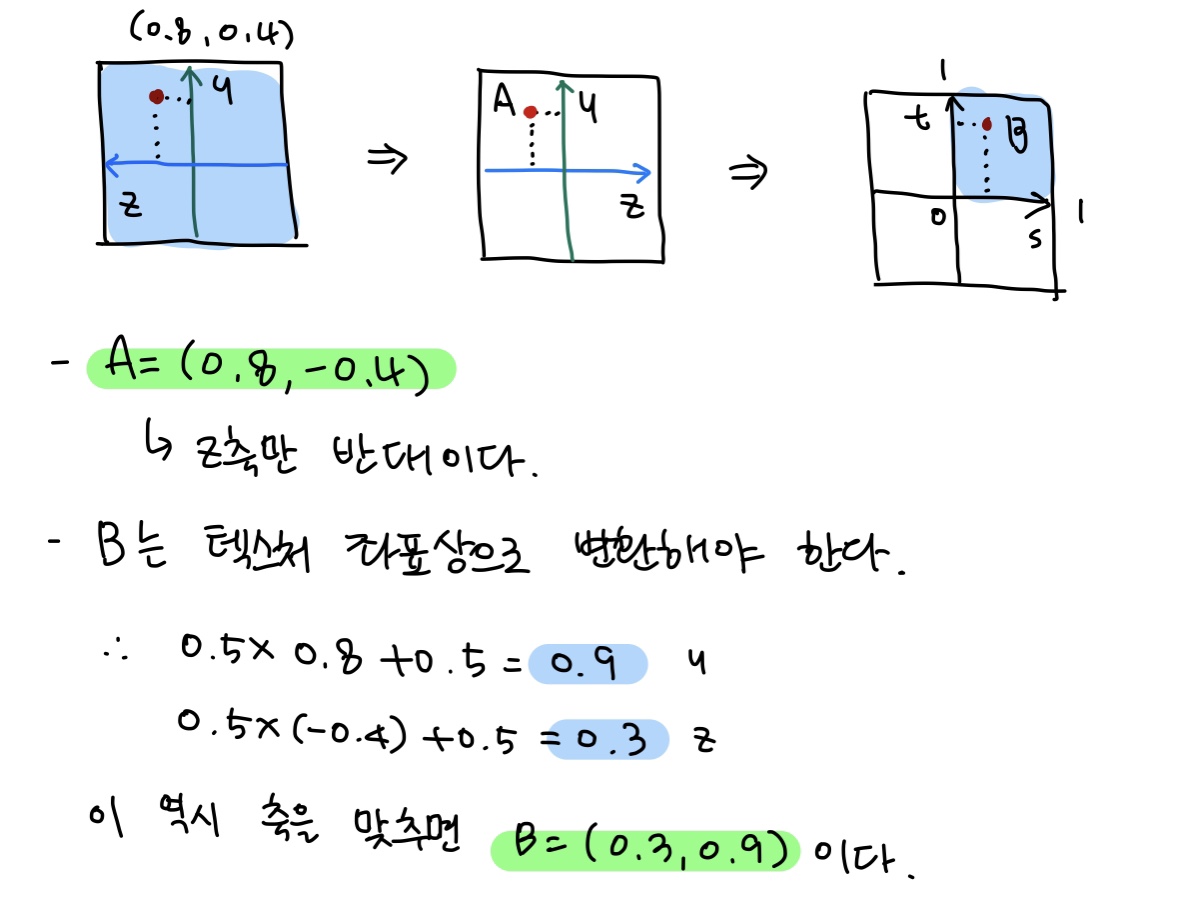 (0.8, 0.4)
y
z
⇒
A
y
z
⇒
1
t
B
0
s
1
- A = (0.8, -0.4)
↳ z축만 반대이다.
- B는 텍스처 좌표상으로 변환해야 한다.
∴ 0.5 × 0.8 + 0.5 = 0.9 y
0.5 × (-0.4) + 0.5 = 0.3 z
이 역시 축을 맞추면 B = (0.3, 0.9) 이다.